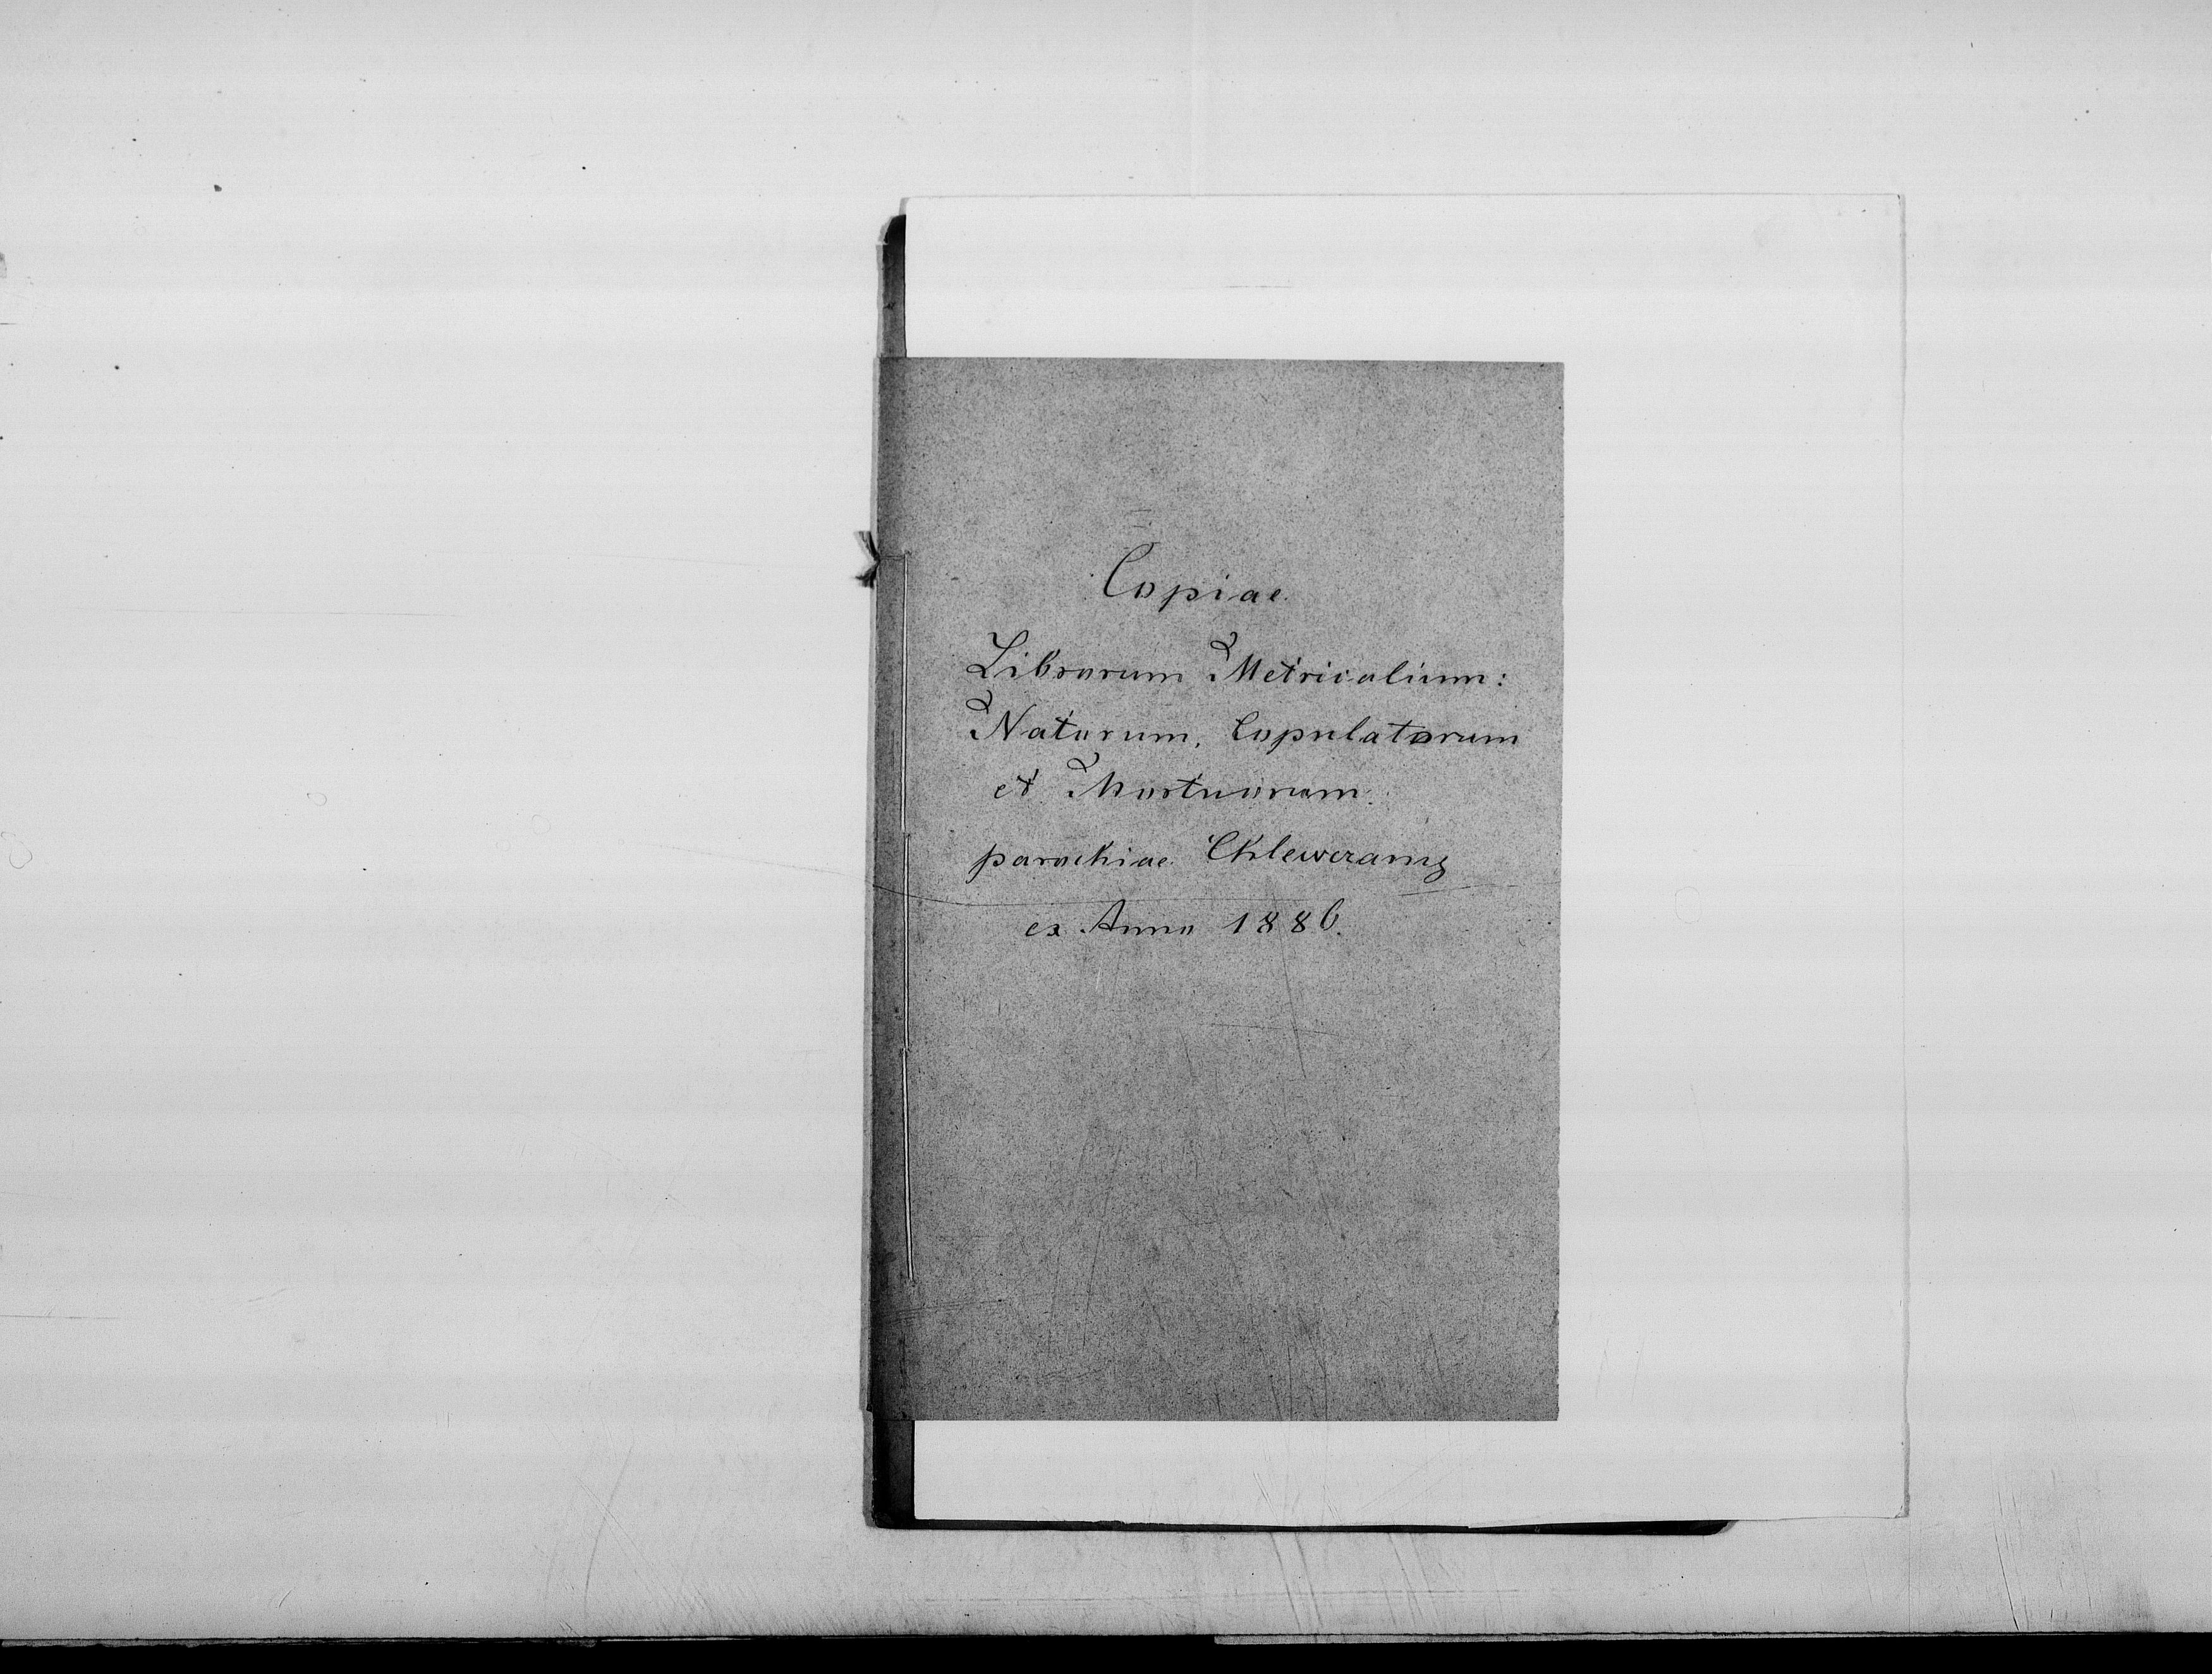 Copiae
Librorum Metricalium:
Natorum, Copulatorum
et Mortuorum
parochiae Chlewczany
ex Anno 1886.